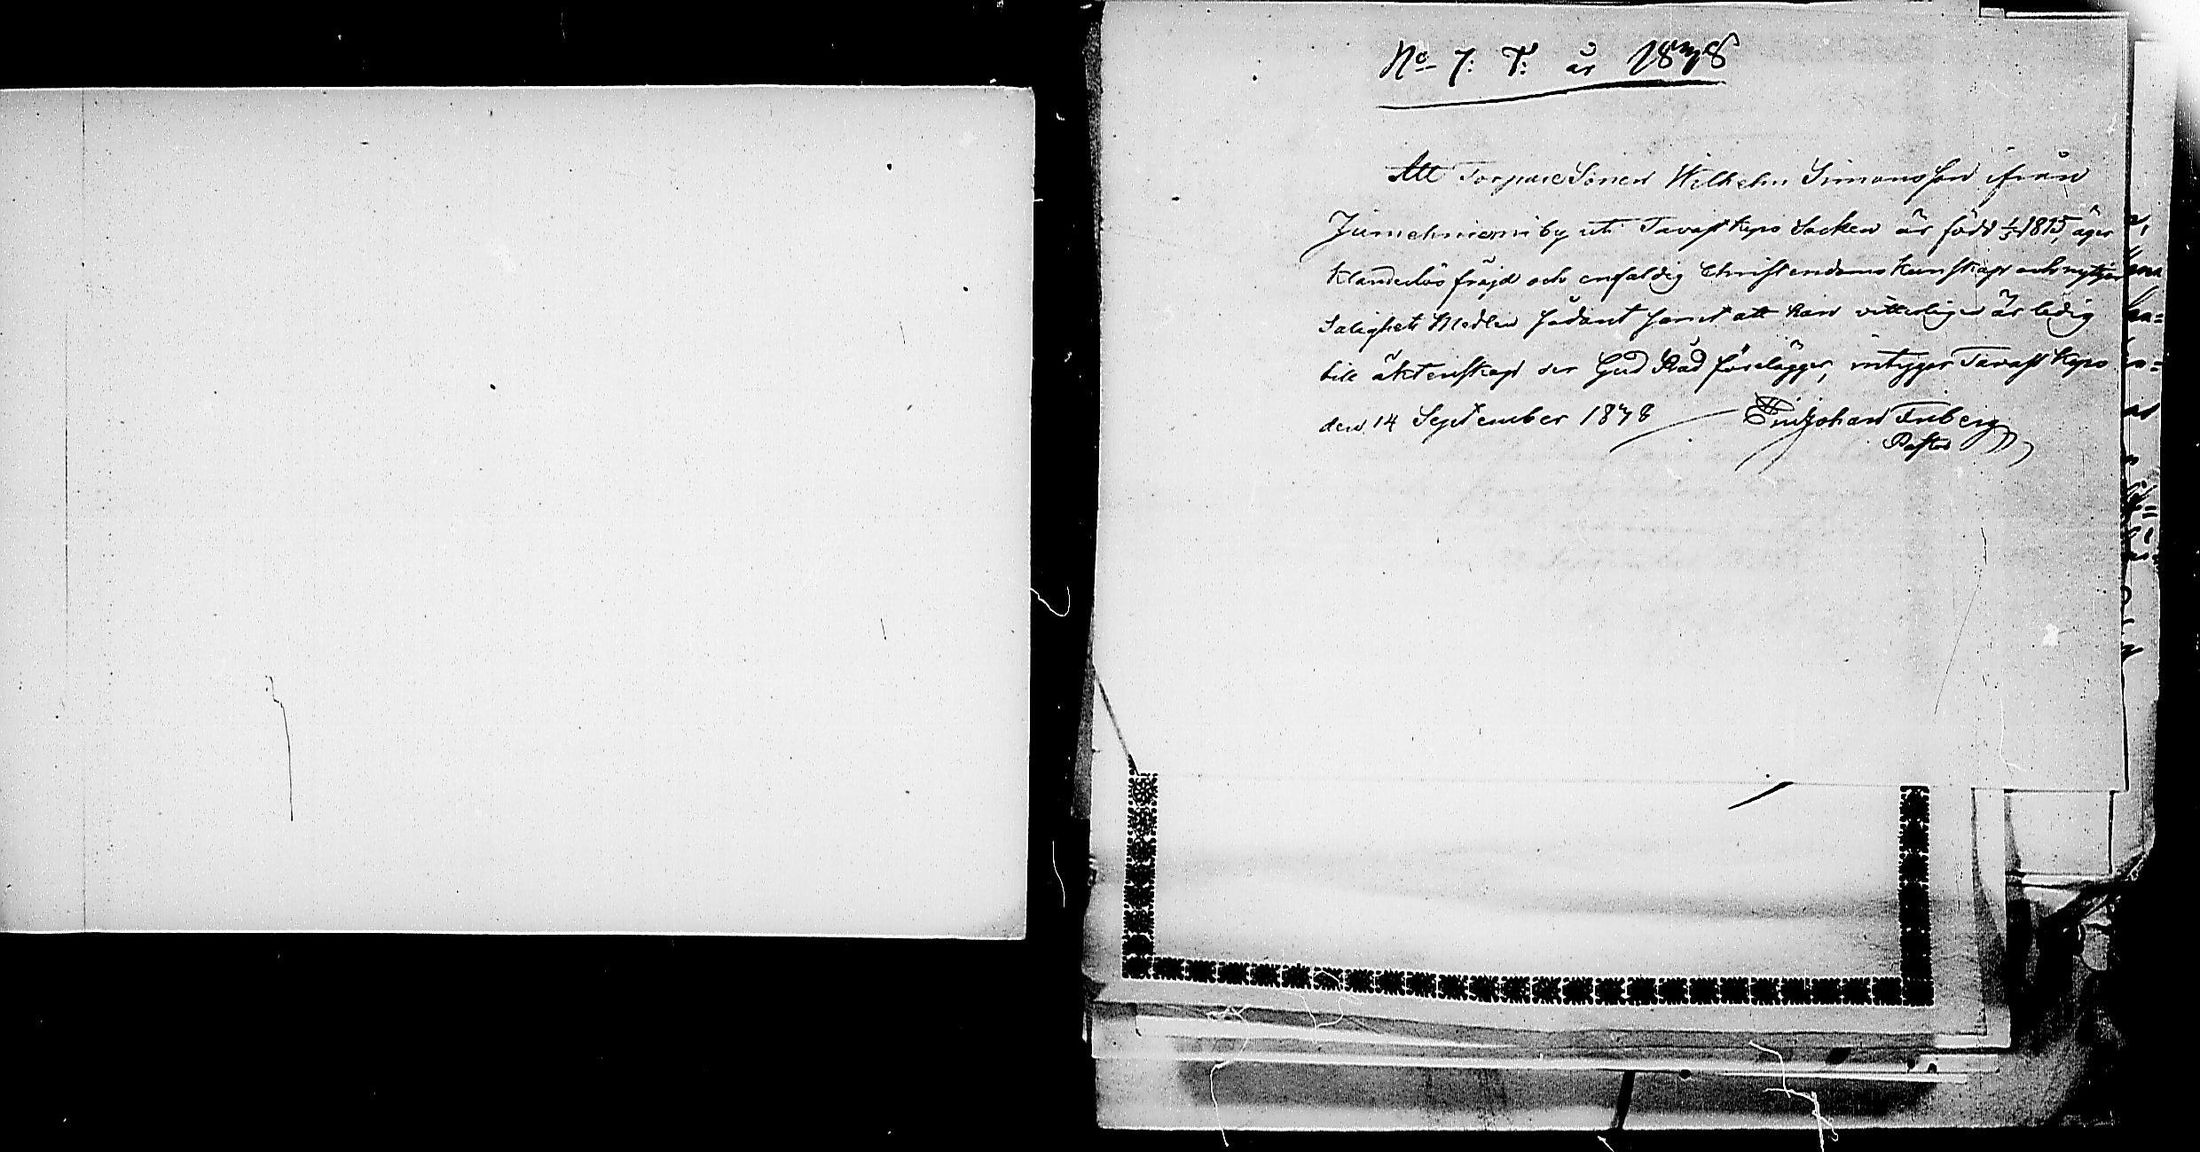 No 7: T: år 1878
Att Torpare Sonen Wilhelm Simonsson ifrån
by uti Tavastkyro Socken är född 1815, äger
Klanderlös frejd och enfaldig Christendoms kunskap och nyttjar
Salighets Medlen sådant samt att han vitterligen är ledig
till äktenskap der Gud Råd förelägger, intygar Tavastkyro
den 14 September 1878 Johan Friberg
Pastor